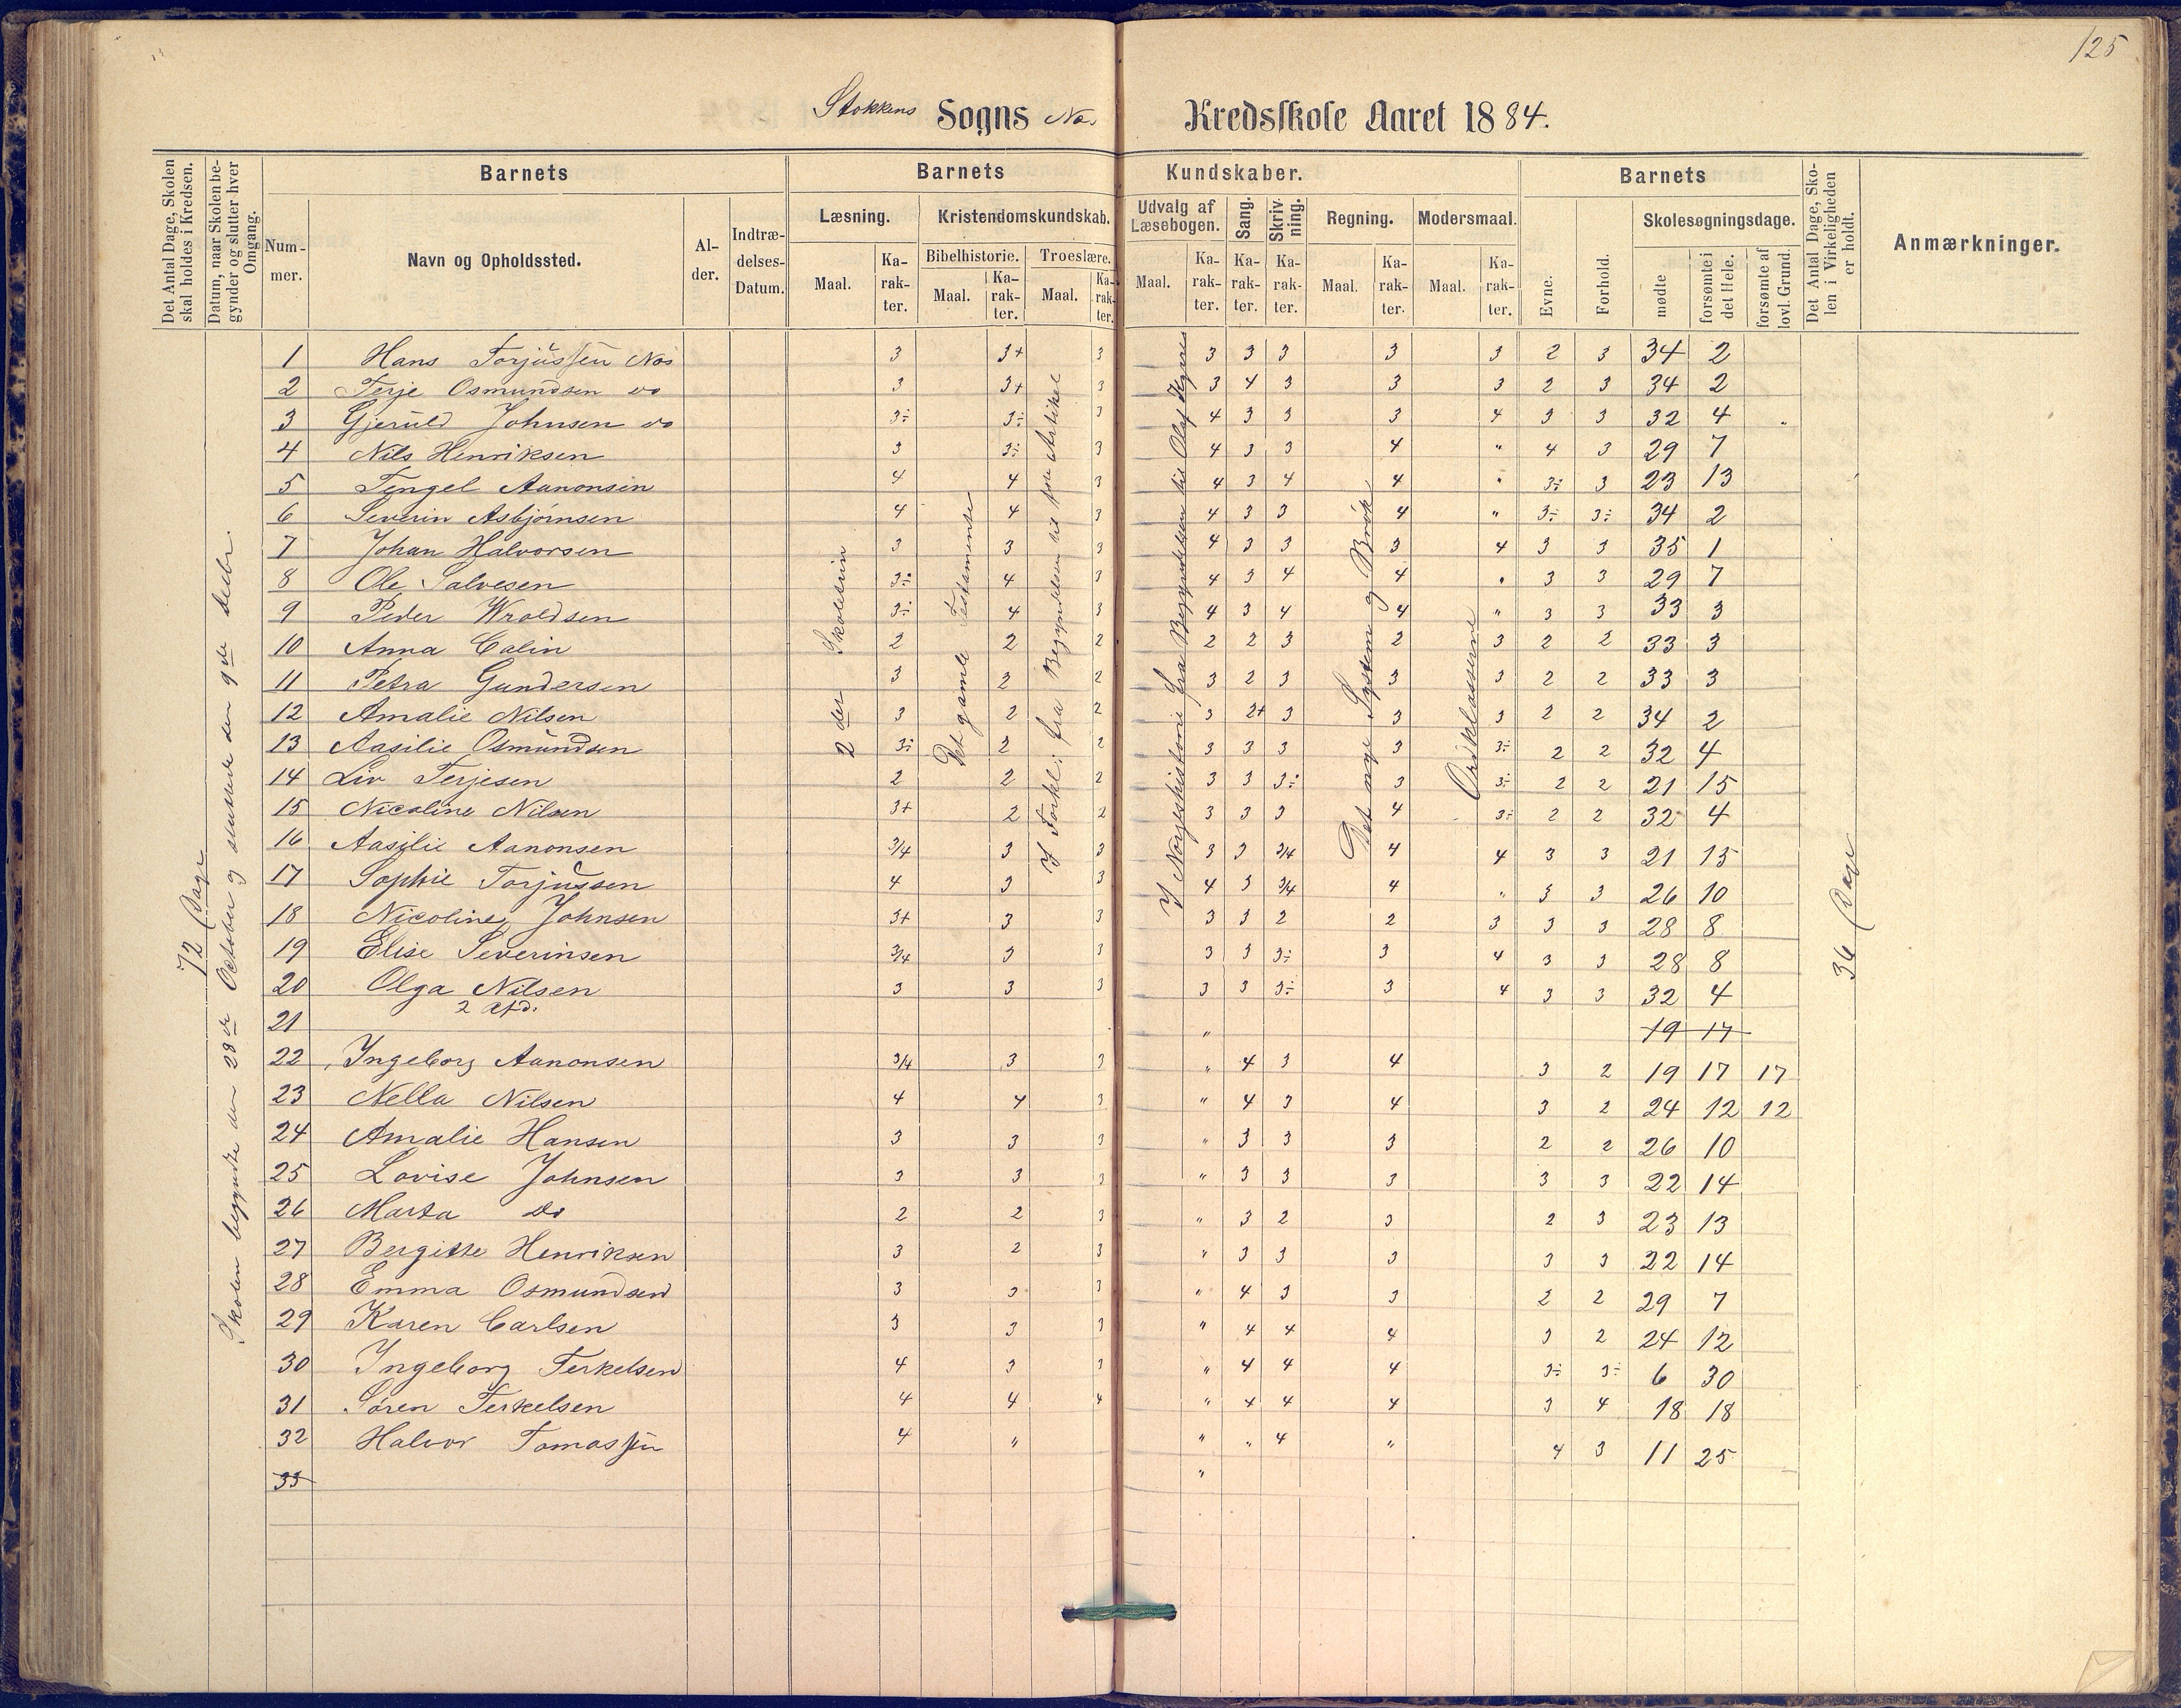 125
Stokkens Sogns Næs Kredsskole Aaret 1884.
Det Antal Dage, Skolen skal holdes i Kredsen.
Datum, naar Skolen begynder og slutter hver Omgang.
Barnets
Nummer.
Navn og Opholdssted.
Alder.
Indtrædelses-Datum.
Barnets Kundskaber.
Læsning.
Maal.
Karakter.
Kristendomskundskab.
Bibelhistorie.
Maal.
Karakter.
Troeslære.
Maal.
Karakter.
Udvalg af Læsebogen.
Maal.
Karakter.
Sang.
Karakter.
Skrivning.
Karakter.
Regning.
Maal.
Karakter.
Modersmaal.
Maal.
Karakter.
Barnets
Evne.
Forhold.
Skolesøgningsdage.
mødte
forsømte i det Hele.
forsømte af lovl. Grund.
Det Antal Dage, Skolen i Virkeligheden er holdt.
Anmærkninger.
72 Dage
Skolen begyndte den 28de October og sluttede den 9de Decbr.
2der Skoletrin
Det gamle Testamente
I Forkl: fra Begyndelsen til Artikel
I Norgeshistorie fra Begyndelsen til Olaf Kyrre
Det nye System og Brøk
Ordklasserne
36 Dage
1 Hans Torjussen Næs 3 3+ 3 3 3 3 3 3 2 3 34 2
2 Terje Osmundsen do 3 3+ 3 3 4 3 3 3 2 3 34 2
3 Gjeruld Johnsen do 3÷ 3÷ 3 4 3 3 3 4 3 3 32 4
4 Nils Henriksen 3 3÷ 3 4 3 3 4 " 4 3 29 7
5 Tengel Aanonsen 4 4 3 4 3 4 4 " 3÷ 3 23 13
6 Severin Asbjørnsen 4 4 3 4 3 3 4 " 3÷ 3÷ 34 2
7 Johan Halvorsen 3 3 3 4 3 3 3 4 3 3 35 1
8 Ole Salvesen 3÷ 4 3 4 3 4 4 " 3 3 29 7
9 Peder Wroldsen 3÷ 4 3 4 3 4 4 " 3 3 33 3
10 Anna Calin 2 2 2 2 2 3 2 3 2 2 33 3
11 Petra Gundersen 3 2 2 3 2 3 3 3 2 2 33 3
12 Amalie Nilsen 3 2 2 3 2+ 3 3 3 2 2 34 2
13 Aasilie Osmundsen 3÷ 2 2 3 3 3 3 3÷ 2 2 32 4
14 Liv Terjesen 2 2 2 3 3 3÷ 3 3÷ 2 2 21 15
15 Nicoline Nilsen 3+ 2 2 3 3 3 4 3÷ 2 2 32 4
16 Aasilie Aanonsen 3/4 3 3 3 3 3/4 4 4 3 3 21 15
17 Sophie Torjussen 4 3 3 4 3 3/4 4 " 3 3 26 10
18 Nicoline Johnsen 3+ 3 3 3 3 2 2 3 3 3 28 8
19 Elise Severinsen 3/4 3 3 3 3 3÷ 3 4 3 3 28 8
20 Olga Nilsen 3 3 3 3 3 3÷ 3 4 3 3 32 4
2 Afd.
21 " 19 17
22 Ingeborg Aanonsen 3/4 3 3 " 4 3 4 3 2 19 17 17
23 Nella Nilsen 4 4 3 " 4 3 4 3 2 24 12 12
24 Amalie Hansen 3 3 3 " 3 3 3 2 2 26 10
25 Lovise Johnsen 3 3 3 " 3 3 3 3 3 22 14
26 Marta do 2 2 3 " 3 2 3 2 3 23 13
27 Bergitte Henriksen 3 2 3 " 3 3 3 3 3 22 14
28 Emma Osmundsen 3 3 3 " 4 3 3 2 2 29 7
29 Karen Carlsen 3 3 3 " 4 4 4 3 2 24 12
30 Ingeborg Terkelsen 4 3 3 " 4 4 4 3÷ 3÷ 6 30
31 Søren Terkelsen 4 4 4 " 4 4 4 3 4 18 18
32 Halvor Tomassen 4 " " " 4 " 4 3 11 25
33 "